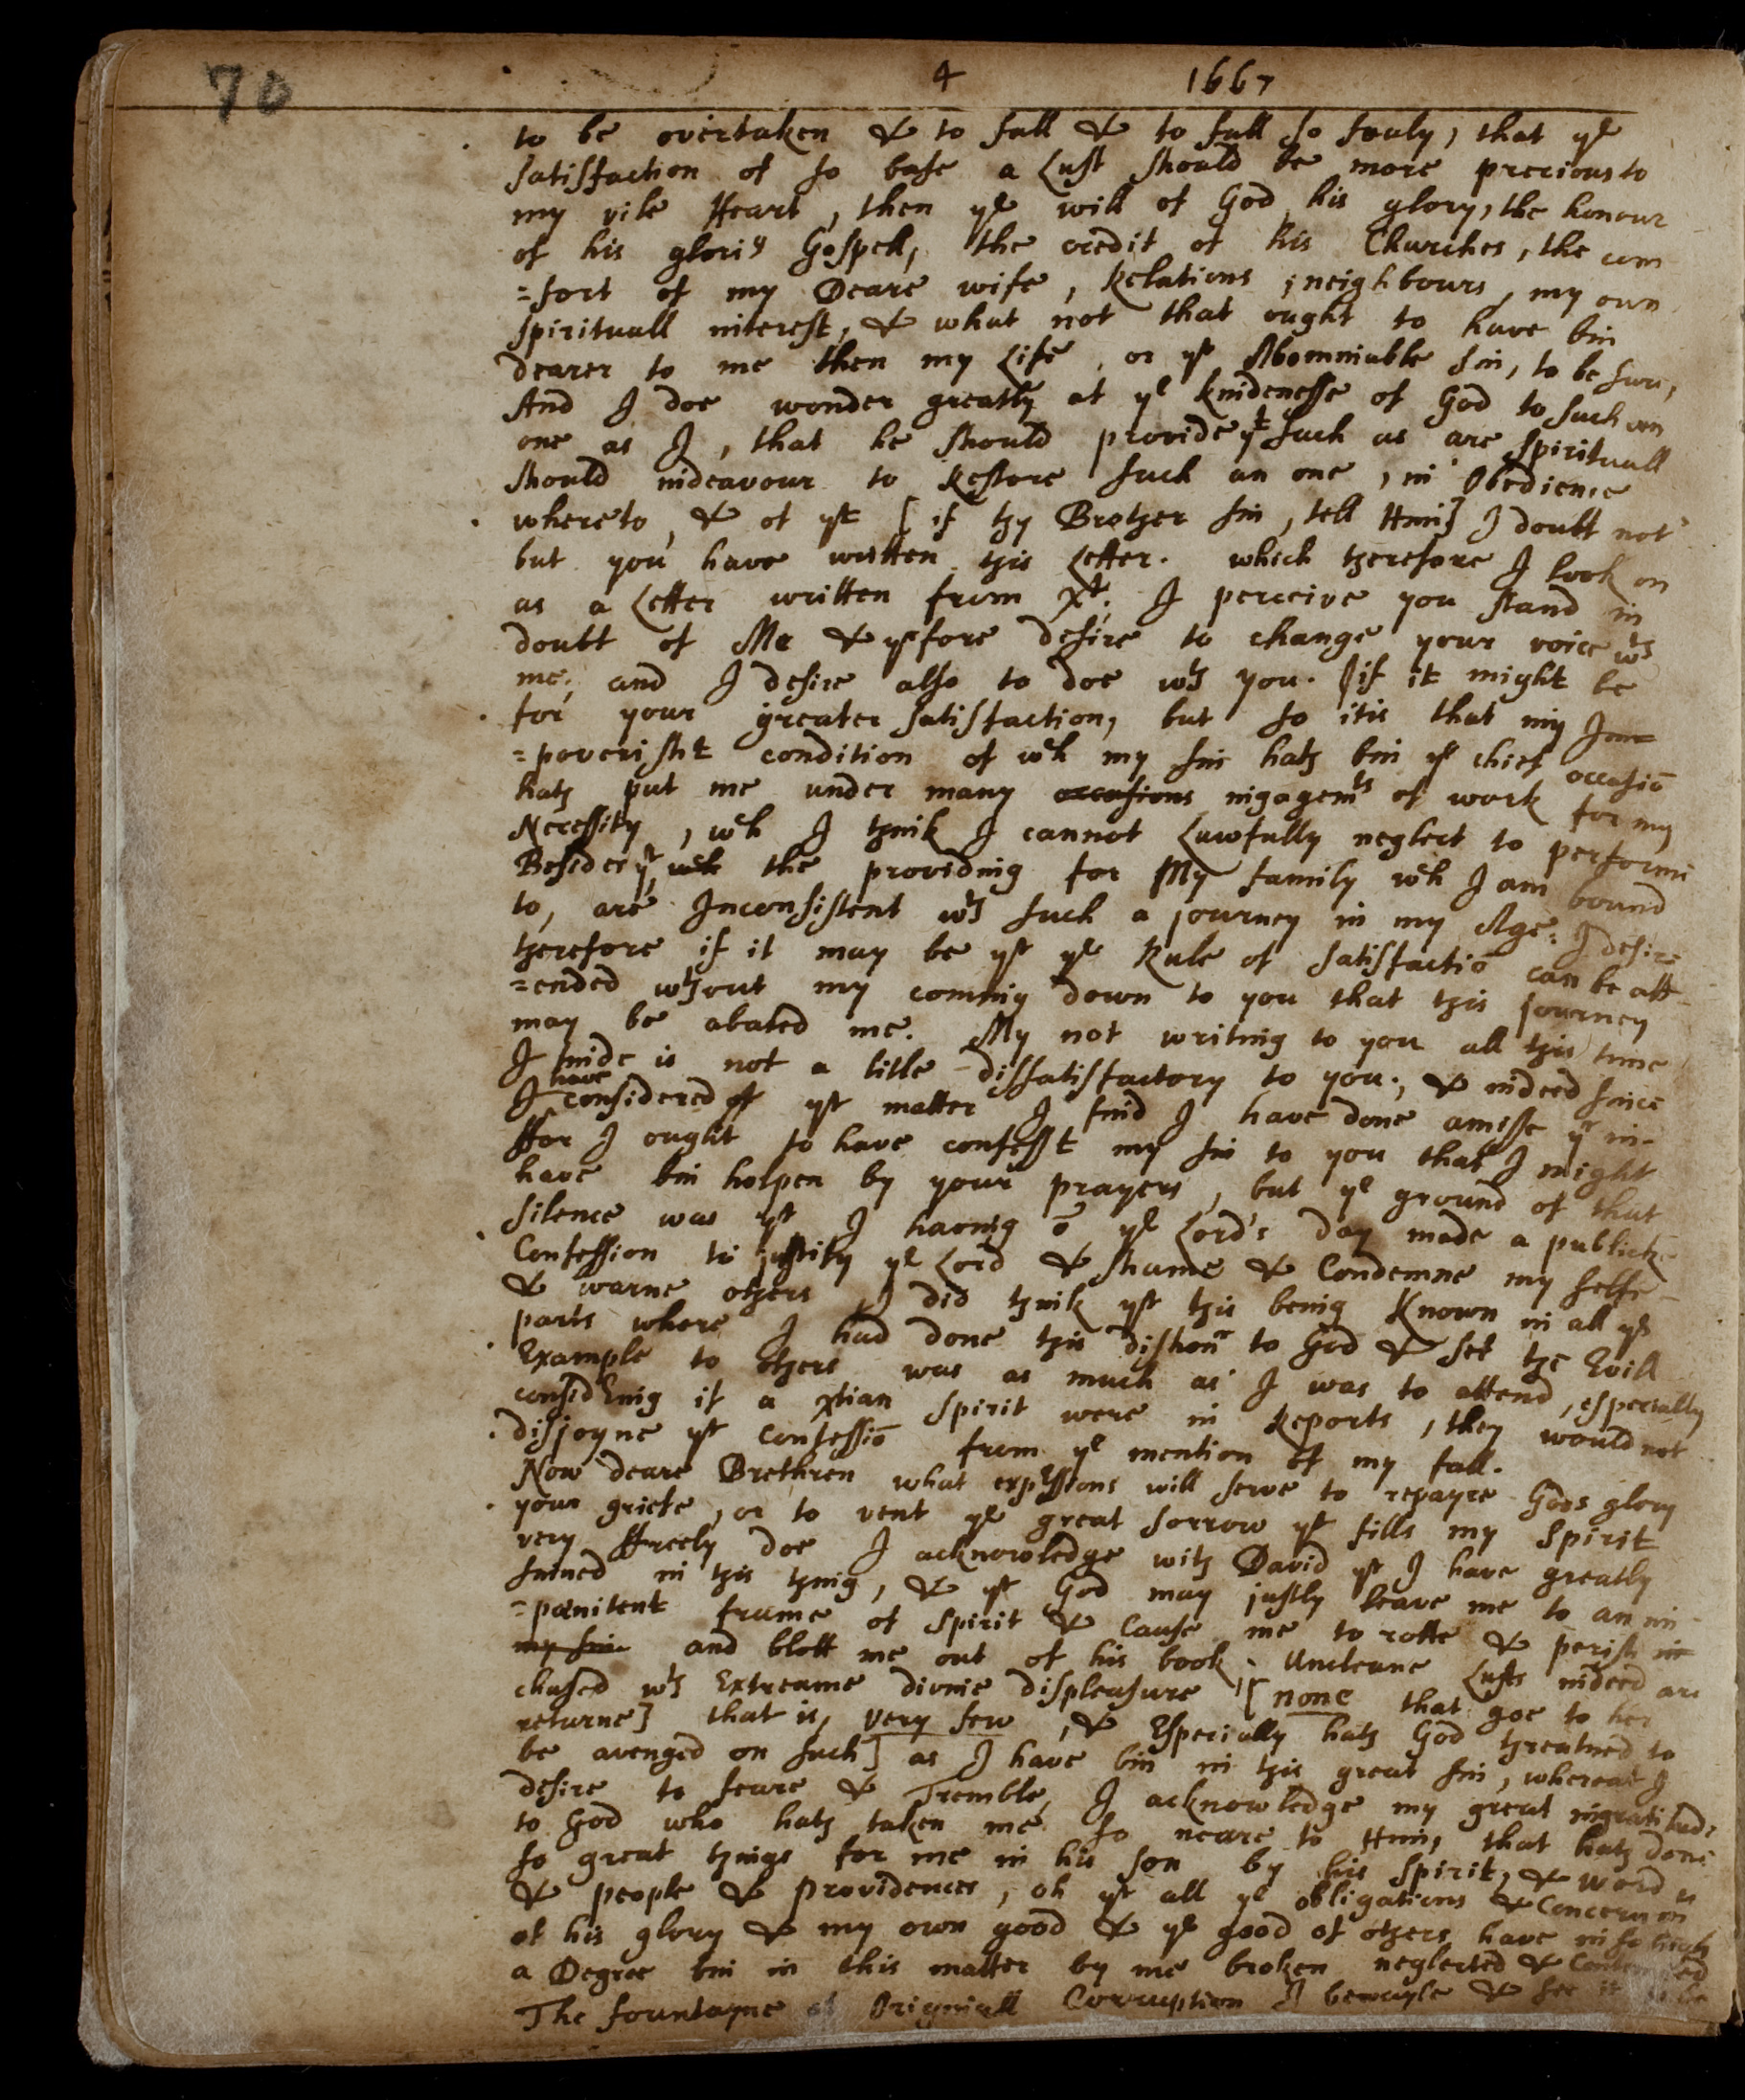 70
4 1667
to be overtaken & to fall & to fall so fouly, that ye
satisfaction of so base a Lust should be more precious to
my vile Heart, then ye will of God his glory, the honour
of his glori9 Gospell, the credit of his Churches, the com
=fort of my Deare wife, Relations, neighbours, my own
spirituall interest, & what not that ought to have bin
dearer to me then my Life, or yt Abominable sin, to be sure,
And I doe wonder greatly at ye kindenesse of God to such an
one as I, that he should provide yt such as are spirituall
should indeavour to Restore such an one, in Obedience
whereto, & of yt [if thy Brother sin, tell Him] I doubt not
but you have written this Letter. which therefore I look on
as a Letter written from Xt. I perceive you stand in
doubt of Me & yrfore desire to change your voice wth
me, and I desire also to doe wth you. if it might be
for your greater satisfaction, but so itis that my Im
=poverisht condition of wch my sin hath bin ye chief occasiō
hath put me under many occasions ingagemts of work for my
Necessity, wch I think I cannot Lawfully neglect to performe
Besides yt, wch the providing for My family wch I am bound
to, are Inconsistent wth such a journey in my Age: I desire
therefore if it may be yt ye Rule of satisfactiō can be att
=ended wthout my coming down to you that this journey
may be abated me. My not writing to you all this time
I finde is not a litle dissatisfactory to you., & indeed since
I have considered of yt matter I find I have done amisse yr in-
ffor I ought to have confesst my sin to you that I might
have bin holpen by your prayers, but ye ground of that
silence was yt I having ō ye Lord's day made a publicke
Confession to justify ye Lord & shame & Condemne my selfe
& warne others, I did think yt this being Known in all ye
parts where I had done this dishonr to God & set the Evill
Example to others was as much as I was to attend, especially
considEring if a xtian spirit were in Reports, they would not
disjoyne yt Confessiō from ye mention of my fall.
Now deare Brethren what expressions will serve to repayre Gods glory
your griefe, or to vent ye great sorrow yt fills my Spirit
very ffreely doe I acknowledge with David yt I have greatly
sinned in this thing, & yt God may justly leave me to an im
=pœnitent frame of Spirit & Cause me to rotte & perish in
my sin and blott me out of his book. Uncleane Lusts indeed are
chased wth Extreame divine displeasure [none that goe to her
returne] that is, very few, & Especially hath God threatned to
be avenged on such] as I have bin in this great sin, whereat I
desire to feare & Tremble, I acknowledge my great ingratitude
to God who hath taken me so neare to Him, that hath done
so great things for me in his son by his spirit, & word
& people & providences, oh yt all ye obligations & Concernm
of his glory & my own good & ye good of others have in so high
a Degree bin in this matter by me broken neglected & Contemned
The fountayne of Originall Corruption I bewayle & see it